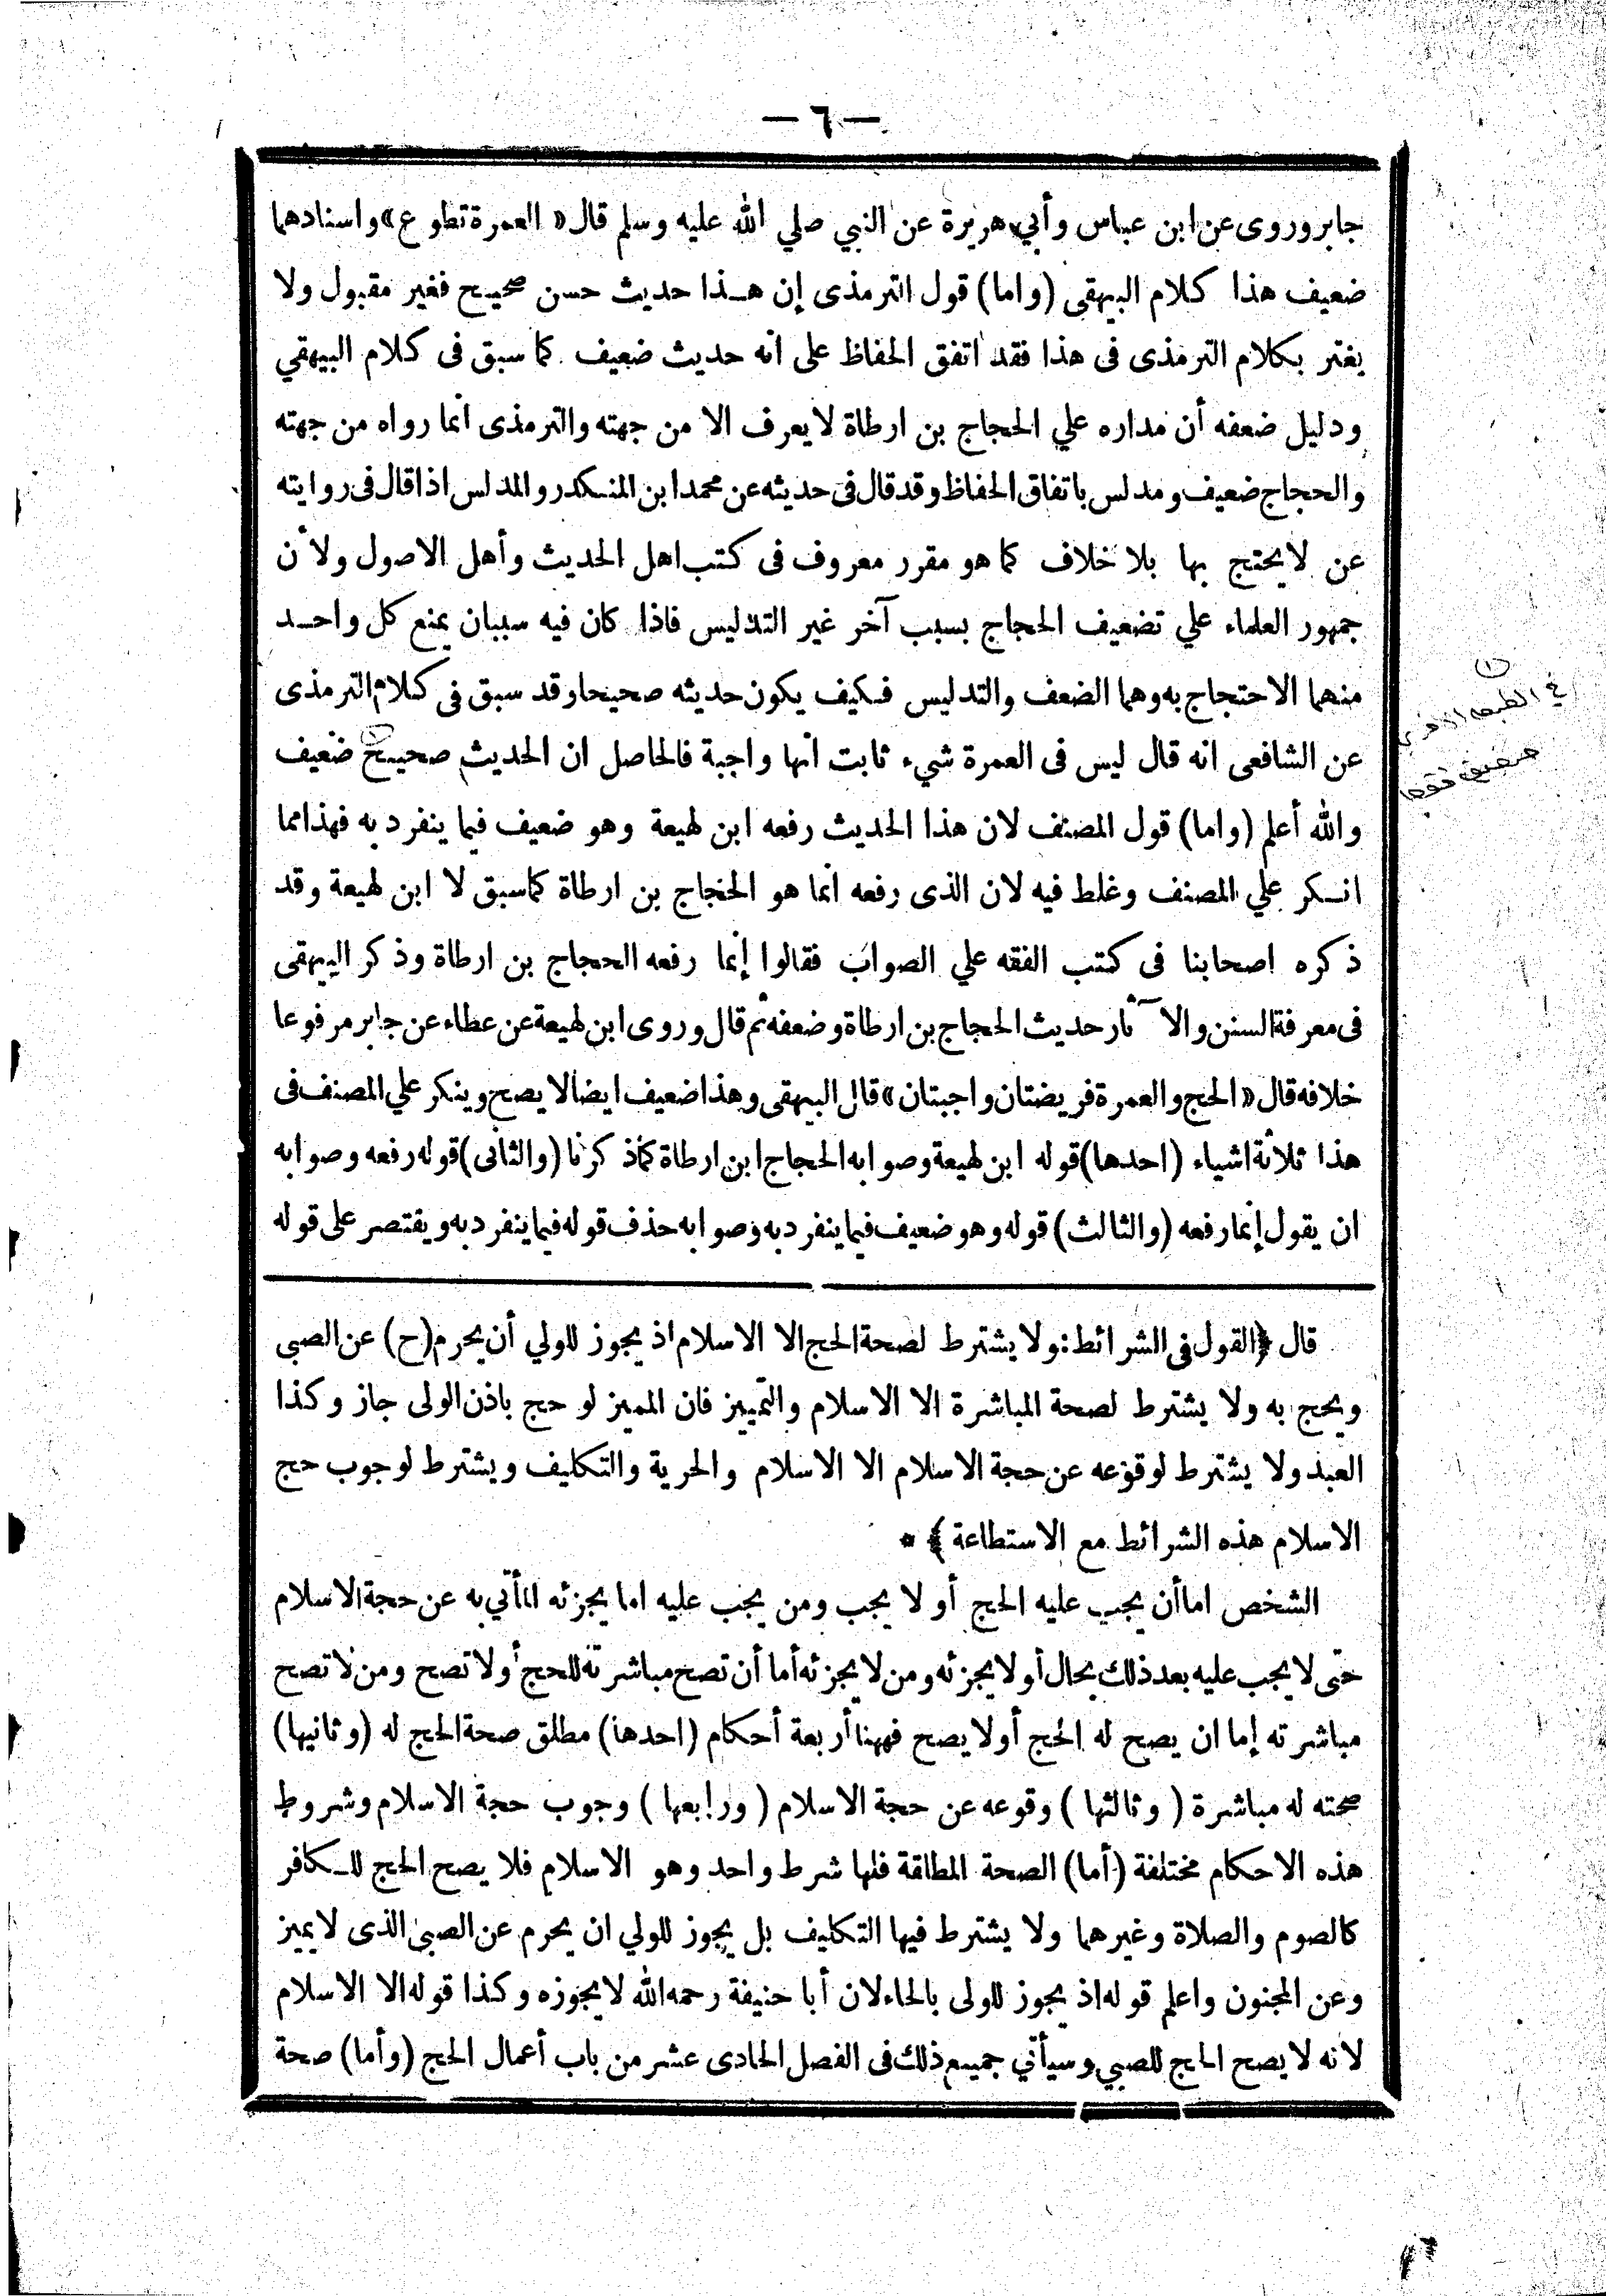 — ٦ —
جابر وروى عن ابن عباس وأبي هريرة عن النبي صلي الله عليه وسلم قال « العمرة تطوع » واسنادهما
ضعيف هذا كلام البيهقى (واما) قول الترمذى إن هـذا حديث حسن صحيح فغير مقبول ولا
يغتر بكلام الترمذى فى هذا فقد اتفق الحفاظ على انه حديث ضعيف كما سبق فى كلام البيهقي
ودليل ضعفه أن مداره علي الحجاج بن ارطاة لا يعرف الا من جهته والترمذى انما رواه من جهته
والحجاج ضعيف ومدلس باتفاق الحفاظ وقد قال فى حديثه عن محمد ابن المنكدر والمدلس اذا قال فى روايته
عن لا يحتج بها بلا خلاف كما هو مقرر معروف فى كتب اهل الحديث وأهل الاصول ولأن
جمهور العلماء علي تضعيف الحجاج بسبب آخر غير التدليس فاذا كان فيه سببان يمنع كل واحـد
منهما الاحتجاج به وهما الضعف والتدليس فكيف يكون حديثه صحيحا وقد سبق فى كلام الترمذى
عن الشافعى انه قال ليس فى العمرة شيء ثابت انها واجبة فالحاصل ان الحديث صحيح (١) ضعيف
والله أعلم (واما) قول المصنف لان هذا الحديث رفعه ابن لهيعة وهو ضعيف فيما ينفرد به فهذا مما
انـكر علي المصنف وغلط فيه لان الذى رفعه انما هو الحجاج بن ارطاة كما سبق لا ابن لهيعة وقد
ذكره اصحابنا فى كتب الفقه علي الصواب فقالوا إنما رفعه الحجاج بن ارطاة وذكر البيهقى
فى معرفة السنن والآثار حديث الحجاج بن ارطاة وضعفه ثم قال وروى ابن لهيعة عن عطاء عن جابر مرفوعا
خلافه قال « الحج والعمرة فريضتان واجبتان » قال البيهقى وهذا ضعيف ايضا لا يصح وينكر علي المصنف فى
هذا ثلاثة اشياء (احدها) قوله ابن لهيعة وصوابه الحجاج ابن ارطاة كما ذكرنا (والثانى) قوله رفعه وصوابه
ان يقول إنما رفعه (والثالث) قوله وهو ضعيف فيما ينفرد به وصوابه حذف قوله فيما ينفرد به ويقتصر على قوله
(١)
فى الطبعه الاخرى
ضعيف فقط
قال ﴿القول فى الشرائط: ولا يشترط لصحة الحج الا الاسلام اذ يجوز للولي أن يحرم (ح) عن الصبى
ويحج به ولا يشترط لصحة المباشرة الا الاسلام والتمييز فان المميز لو حج باذن الولى جاز وكذا
العبد ولا يشترط لوقوعه عن حجة الاسلام الا الاسلام والحرية والتكليف ويشترط لوجوب حج
الاسلام هذه الشرائط مع الاستطاعة ﴾ *
الشخص اما أن يجب عليه الحج أو لا يجب ومن يجب عليه اما يجزئه المأتي به عن حجة الاسلام
حتى لا يجب عليه بعد ذلك بحال أو لا يجزئه ومن لا يجزئه أما أن تصح مباشرته للحج أو لا تصح ومن لا تصح
مباشرته إما ان يصح له الحج أو لا يصح فههنا أربعة أحكام (احدها) مطلق صحة الحج له (وثانيها)
صحته له مباشرة ( وثالثها ) وقوعه عن حجة الاسلام ( ورابعها ) وجوب حجة الاسلام وشروط
هذه الاحكام مختلفة (أما) الصحة المطلقة فلها شرط واحد وهو الاسلام فلا يصح الحج للـكافر
كالصوم والصلاة وغيرهما ولا يشترط فيها التكليف بل يجوز للولي ان يحرم عن الصبى الذى لا يميز
وعن المجنون واعلم قوله اذ يجوز للولى بالحاء لان أبا حنيفة رحمه الله لا يجوزه وكذا قوله الا الاسلام
لانه لا يصح الحج للصبي وسيأتي جميع ذلك فى الفصل الحادى عشر من باب أعمال الحج (وأما) صحة